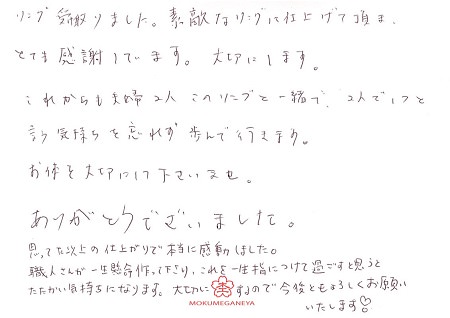 リング受取りました。素敵なリングに仕上げて頂き、
とても感謝しています。大切にします。
これからも夫婦2人このリングと一緒で、2人で1つと
言う気持ちを忘れず歩んで行きます。
お体を大切にして下さいませ。
ありがとうございました。
思ってた以上の仕上がりで本当に感動しました。
職人さんが一生懸命作って下さり、これを一生指につけて過ごすと思うと
たたかい気持ちになります。大切にするので今後ともよろしくお願い
いたします♡
MOKUMEGANEYA